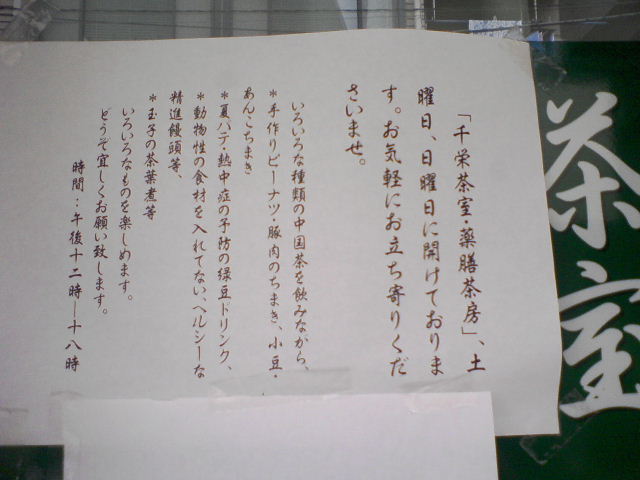 茶室
「千栄茶室・薬膳茶房」、土
曜日、日曜日に開けておりま
す。お気軽にお立ち寄りくだ
さいませ。
いろいろな種類の中国茶を飲みながら、
＊手作りピーナツ・豚肉のちまき、小豆・
あんこちまき
＊夏バテ・熱中症の予防の緑豆ドリンク、
＊動物性の食材を入れてない、ヘルシーな
精進饅頭等、
＊玉子の茶葉煮等
いろいろなものを楽しめます。
どうぞ宜しくお願い致します。
時間：午後十二時―十八時